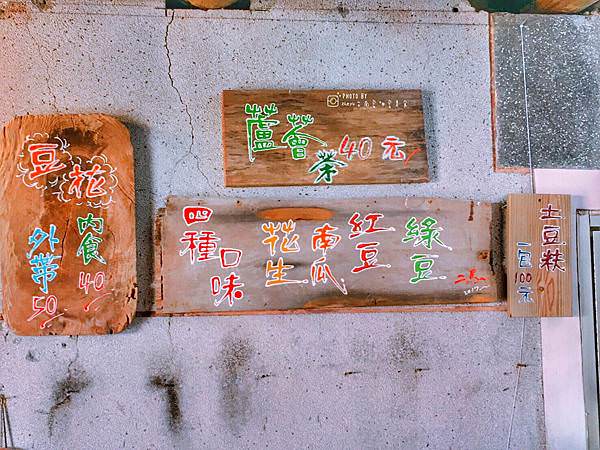 豆花
內食
40
外帶
50
PHOTO BY
蘆薈茶 40元
四種口味
花生
南瓜
紅豆
綠豆
2017
土豆麩
一包100元